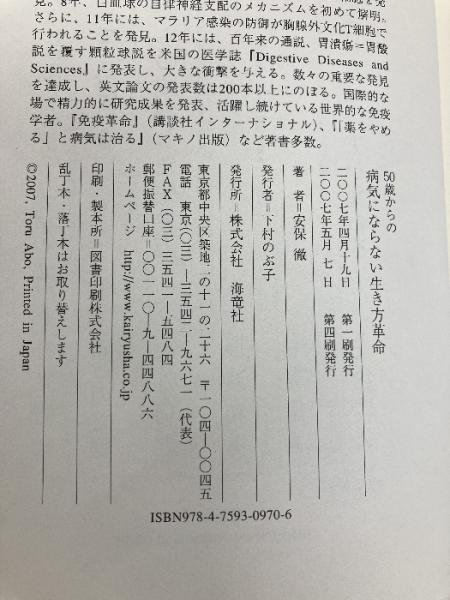 見。8年、白血球の自律神経支配のメカニズムを初めて解明。
さらに、11年には、マラリア感染の防御が胸腺外文化T細胞で
行われることを発見。12年には、百年来の通説、胃潰瘍=胃酸
説を覆す顆粒球説を米国の医学誌『Digestive Diseases and
Sciences』に発表し、大きな衝撃を与える。数々の重要な発見
を達成し、英文論文の発表数は200本以上にのぼる。国際的な
場で精力的に研究成果を発表、活躍し続けている世界的な免疫
学者。『免疫革命』(講談社インターナショナル)、『「薬をやめ
る」と病気は治る』(マキノ出版)など著書多数。
50歳からの
病気にならない生き方革命
二〇〇七年四月十九日 第一刷発行
二〇〇七年五月七日 第四刷発行
著者=安保 徹
発行者=下村のぶ子
発行所=株式会社 海竜社
東京都中央区築地二の十一の二十六 〒一〇四─〇〇四五
電話 東京(〇三)三五四二─九六七一(代表)
FAX(〇三)三五四一─五四八四
郵便振替口座=〇〇一一〇─九─四四八八六
ホームページ http://www.kairyusha.co.jp
印刷・製本所=図書印刷株式会社
乱丁本・落丁本はお取り替えします
©2007, Toru Abo, Printed in Japan
ISBN978-4-7593-0970-6